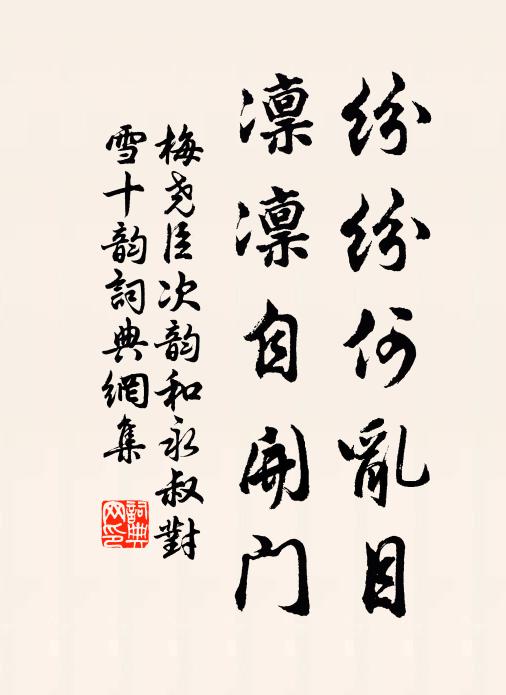 纷纷何亂目
凛凛自開门
梅尧臣次韵和永叔對
雪十韵詞典網集
詞典网印